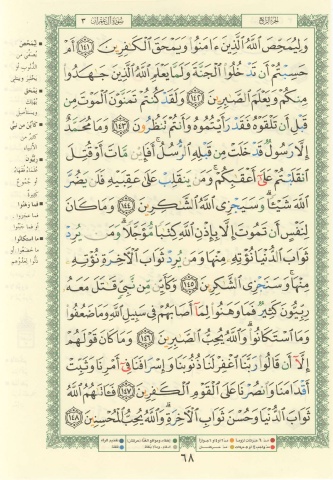 الجزء الرابع
سورة آل عمران ٣
وَلِيُمَحِّصَ ٱللَّهُ ٱلَّذِينَ ءَامَنُوا۟ وَيَمْحَقَ ٱلْكَٰفِرِينَ ١٤١ أَمْ
حَسِبْتُمْ أَن تَدْخُلُوا۟ ٱلْجَنَّةَ وَلَمَّا يَعْلَمِ ٱللَّهُ ٱلَّذِينَ جَٰهَدُوا۟
مِنكُمْ وَيَعْلَمَ ٱلصَّٰبِرِينَ ١٤٢ وَلَقَدْ كُنتُمْ تَمَنَّوْنَ ٱلْمَوْتَ مِن
قَبْلِ أَن تَلْقَوْهُ فَقَدْ رَأَيْتُمُوهُ وَأَنتُمْ تَنظُرُونَ ١٤٣ وَمَا مُحَمَّدٌ
إِلَّا رَسُولٌ قَدْ خَلَتْ مِن قَبْلِهِ ٱلرُّسُلُ أَفَإِي۟ن مَّاتَ أَوْ قُتِلَ
ٱنقَلَبْتُمْ عَلَىٰٓ أَعْقَٰبِكُمْ وَمَن يَنقَلِبْ عَلَىٰ عَقِبَيْهِ فَلَن يَضُرَّ
ٱللَّهَ شَيْـًٔا وَسَيَجْزِى ٱللَّهُ ٱلشَّٰكِرِينَ ١٤٤ وَمَا كَانَ
لِنَفْسٍ أَن تَمُوتَ إِلَّا بِإِذْنِ ٱللَّهِ كِتَٰبًا مُّؤَجَّلًا وَمَن يُرِدْ
ثَوَابَ ٱلدُّنْيَا نُؤْتِهِۦ مِنْهَا وَمَن يُرِدْ ثَوَابَ ٱلْءَاخِرَةِ نُؤْتِهِۦ
مِنْهَا وَسَنَجْزِى ٱلشَّٰكِرِينَ ١٤٥ وَكَأَيِّن مِّن نَّبِىٍّ قَٰتَلَ مَعَهُۥ
رِبِّيُّونَ كَثِيرٌ فَمَا وَهَنُوا۟ لِمَآ أَصَابَهُمْ فِى سَبِيلِ ٱللَّهِ وَمَا ضَعُفُوا۟
وَمَا ٱسْتَكَانُوا۟ وَٱللَّهُ يُحِبُّ ٱلصَّٰبِرِينَ ١٤٦ وَمَا كَانَ قَوْلَهُمْ
إِلَّآ أَن قَالُوا۟ رَبَّنَا ٱغْفِرْ لَنَا ذُنُوبَنَا وَإِسْرَافَنَا فِىٓ أَمْرِنَا وَثَبِّتْ
أَقْدَامَنَا وَٱنصُرْنَا عَلَى ٱلْقَوْمِ ٱلْكَٰفِرِينَ ١٤٧ فَـَٔاتَىٰهُمُ ٱللَّهُ
ثَوَابَ ٱلدُّنْيَا وَحُسْنَ ثَوَابِ ٱلْءَاخِرَةِ وَٱللَّهُ يُحِبُّ ٱلْمُحْسِنِينَ ١٤٨
٦٨